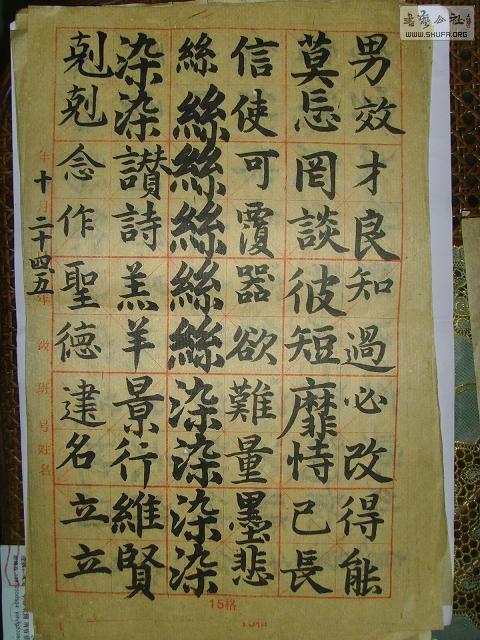 書法公社
WWW.SHUFA.ORG
男效才良知過必改得能
莫忘罔談彼短靡恃己長
信使可覆器欲難量墨悲
絲絲絲絲絲絲染染染染
染染讚詩羔羊景行維賢
剋剋念作聖德建名立立
年十月二十四.五
班号姓名
15格